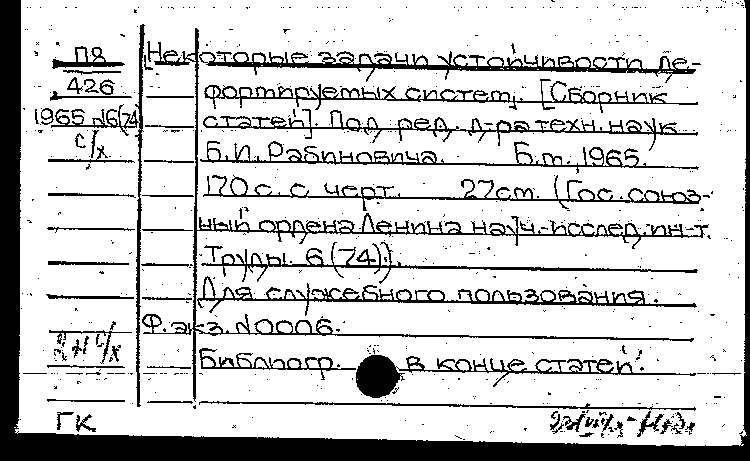 П8
426
1965 №6(74)
с/х
Некоторые задачи устойчивости де-
формируемых систем. [Сборник
статей]. Под ред. д-ра техн. наук
Б.И. Рабиновича. Б.м., 1965.
170 с. с черт. 27см. (Гос. союз-
ный ордена Ленина науч.-исслед. ин-т.
Труды. 6(74)).
Для служебного пользования.
Ф. экз. №0006.
Библиогр. в конце статей.
с/х
ГК